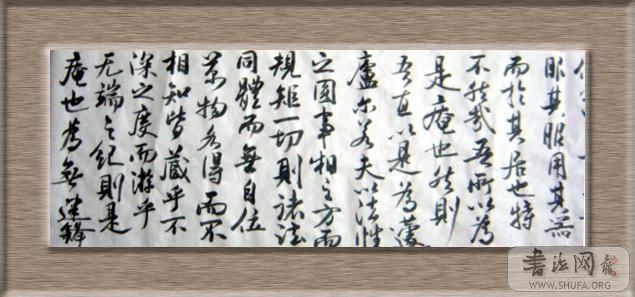 服其服用其器
而於其居也特
不然哉吾所以為
是庵也然則
吾直以是為蘧
廬尔若夫以法性
之圆事相之方而
規矩一切則諸法
同體而無自位
萬物各得而不
相知皆藏乎不
深之度而游乎
无端之紀則是
庵也為無
書法网
WWW.SHUFA.ORG